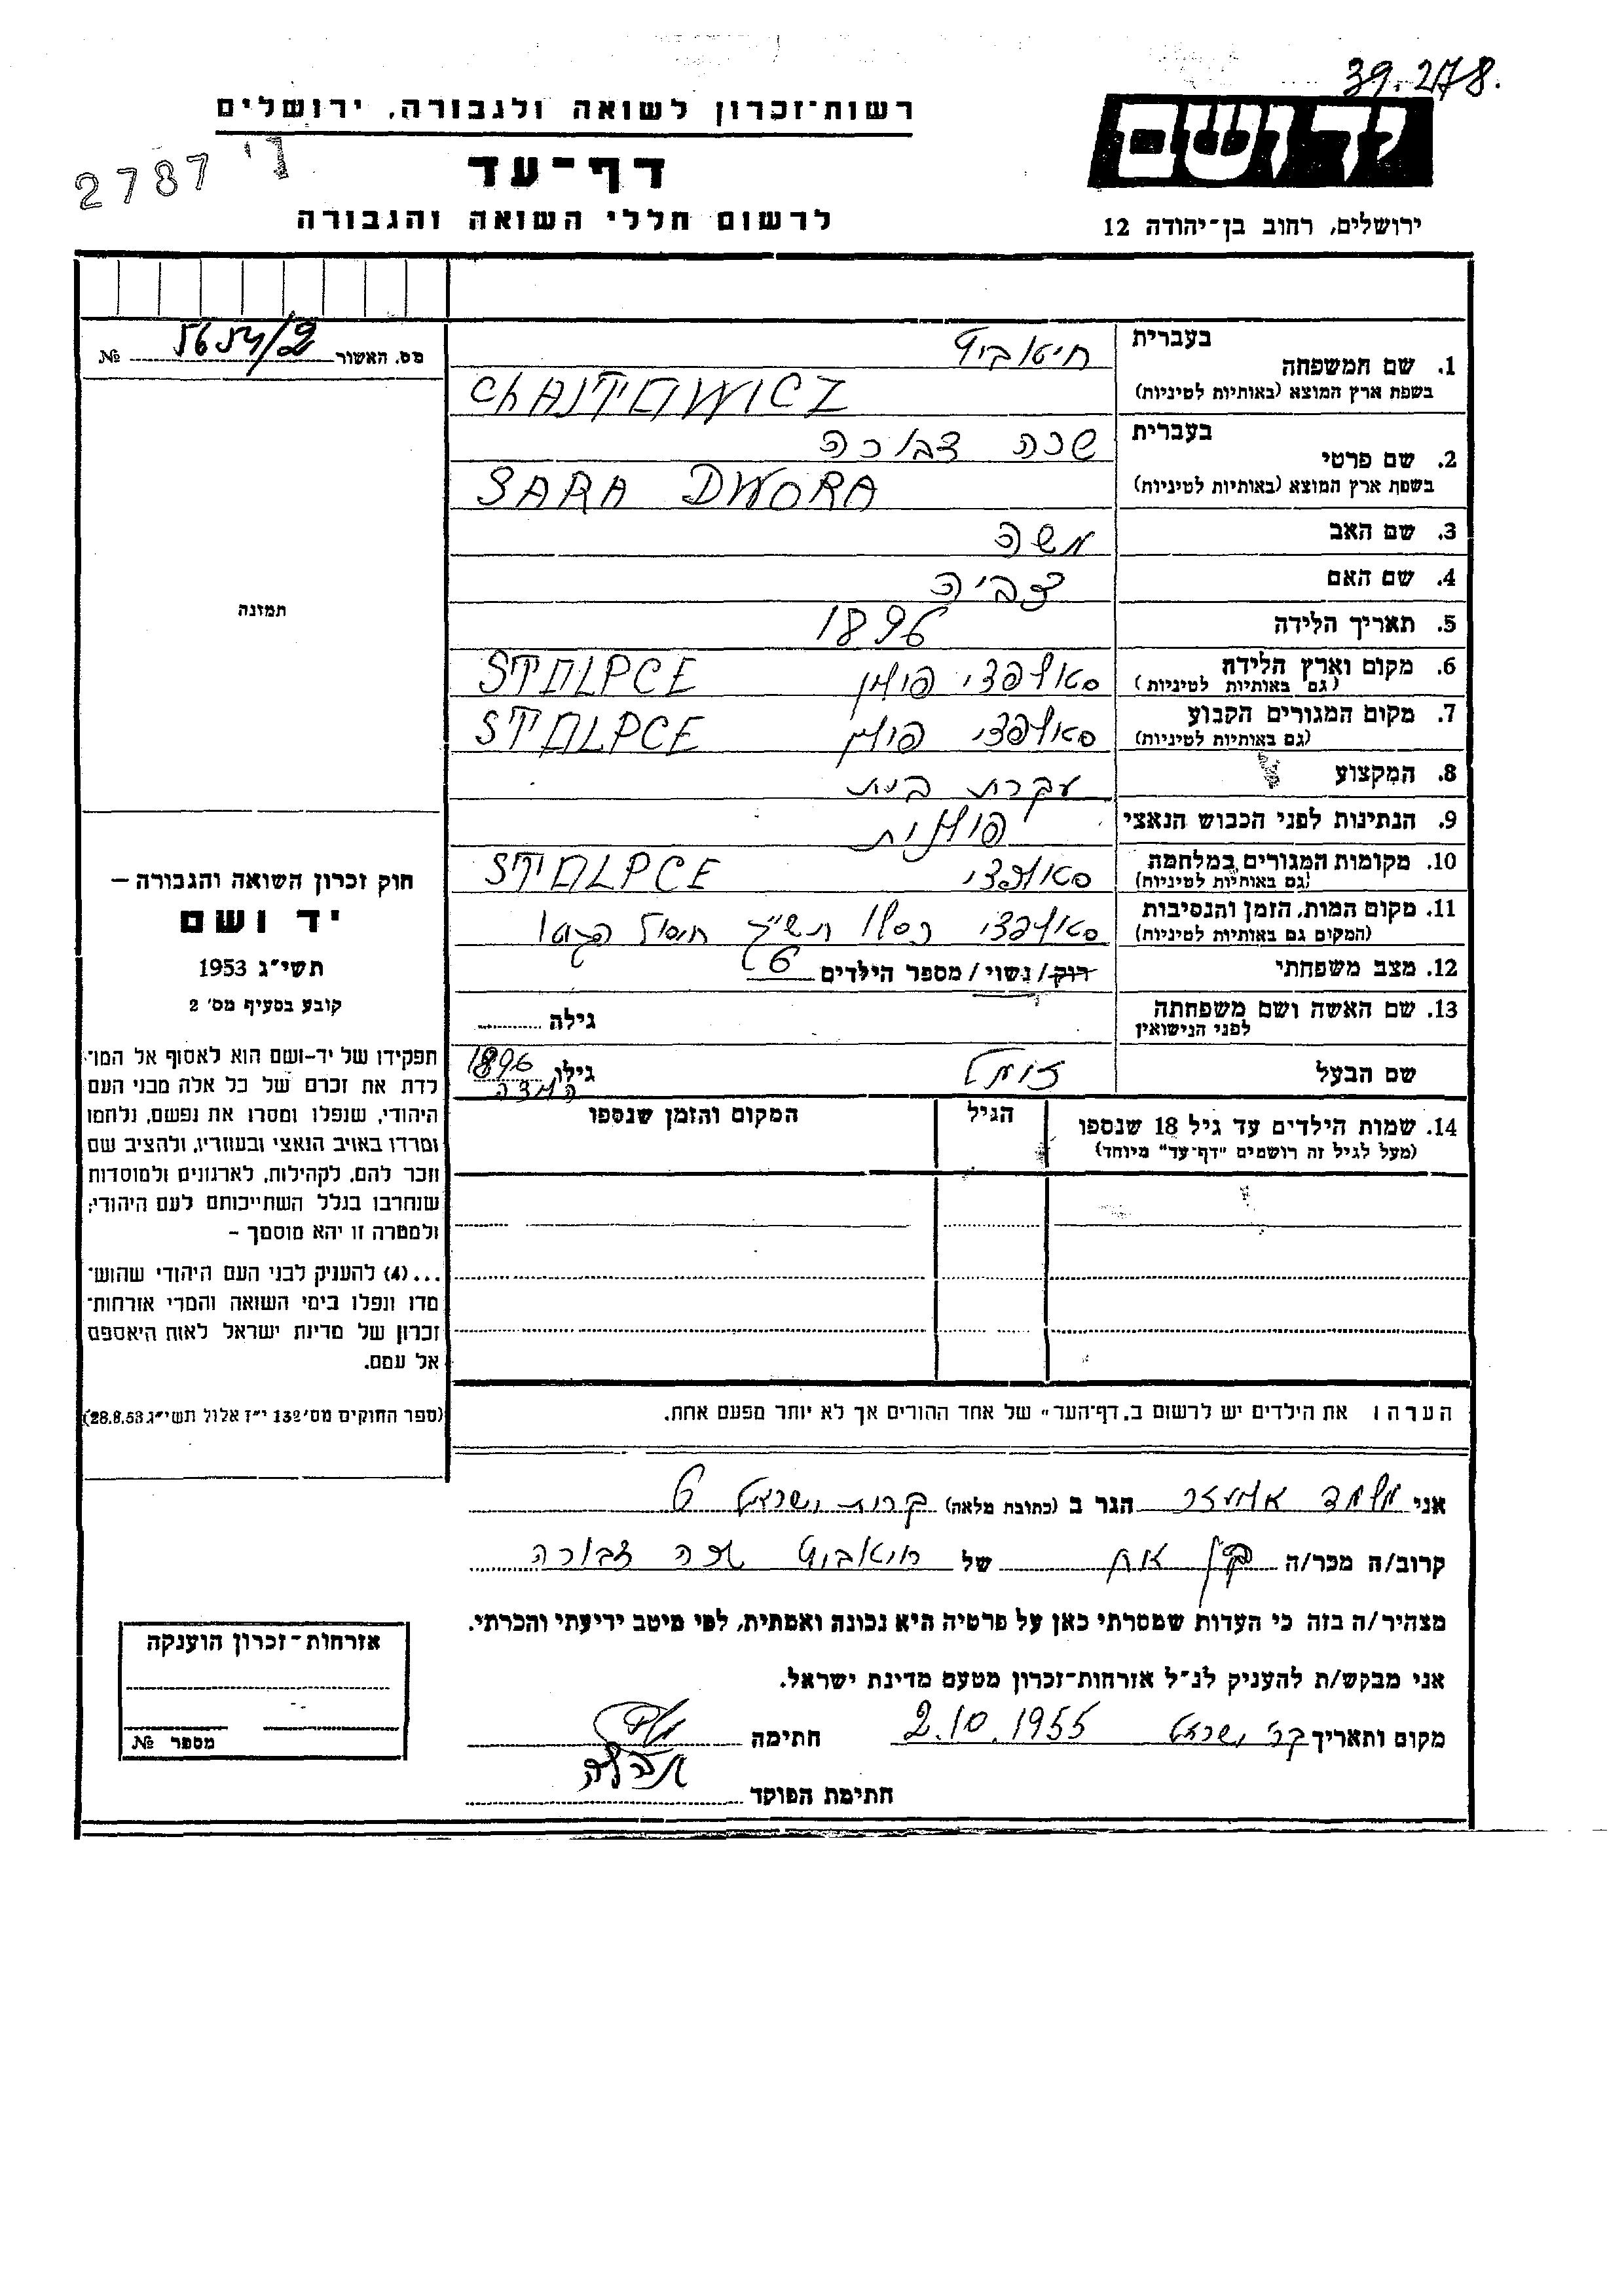 39.278.
רשות־זכרון לשואה ולגבורה, ירושלים
ידושם
2787 ד'
דף־עד
לרשום חללי השואה והגבורה
ירושלים, רחוב בן־יהודה 12
מס. האשור 5654/2 №
1. שם המשפחה
בעברית
חיטוביץ
בשפת ארץ המוצא (באותיות לטיניות)
CHAITOWICZ
2. שם פרטי
בעברית
שרה דבורה
בשפת ארץ המוצא (באותיות לטיניות)
SARA DWORA
3. שם האב
משה
4. שם האם
צביה
5. תאריך הלידה
1896
6. מקום וארץ הלידה
(גם באותיות לטיניות)
סטולפצי פולין STOLPCE
7. מקום המגורים הקבוע
(גם באותיות לטיניות)
סטולפצי פולין STOLPCE
8. המקצוע
עקרת בית
9. הנתינות לפני הכבוש הנאצי
פולנית
10. מקומות המגורים במלחמה
(גם באותיות לטיניות)
סטולפצי STOLPCE
11. מקום המות, הזמן והנסיבות
(המקום גם באותיות לטיניות)
סטולפצי כסלו חיסול הגטו
12. מצב משפחתי
רוק/ נשוי/ מספר הילדים 6
13. שם האשה ושם משפחתה
לפני הנישואין
גילה
שם הבעל
גילו 1896
14. שמות הילדים עד גיל 18 שנספו
(מעל לגיל זה רושמים "דף־עד" מיוחד)
הגיל
המקום והזמן שנספו
הערה: את הילדים יש לרשום ב„דף־העד" של אחד ההורים אך לא יותר מפעם אחת.
תמונה
חוק זכרון השואה והגבורה –
יד ושם
תשי״ג 1953
קובע בסעיף מס׳ 2
תפקידו של יד-ושם הוא לאסוף אל המו־
לדת את זכרם של כל אלה מבני העם
היהודי, שנפלו ומסרו את נפשם, נלחמו
ומרדו באויב הנאצי ובעוזריו, ולהציב שם
וזכר להם, לקהילות, לארגונים ולמוסדות
שנחרבו בגלל השתייכותם לעם היהודי;
ולמטרה זו יהא מוסמך –
...(4) להעניק לבני העם היהודי שהוש־
מדו ונפלו בימי השואה והמרי אזרחות־
זכרון של מדינת ישראל לאות היאספם
אל עמם.
(ספר החוקים מס׳ 132 י״ז אלול תשי״ג 28.8.53)
אני מלמד אליעזר הגר ב (כתובת מלאה) קרית ישראל 6
קרוב/ה מכר/ה בן אח של חיטוביץ שרה דבורה
מצהיר/ה בזה כי העדות שמסרתי כאן על פרטיה היא נכונה ואמתית, לפי מיטב ידיעתי והכרתי.
אני מבקש/ת להעניק לנ״ל אזרחות־זכרון מטעם מדינת ישראל.
מקום ותאריך קר׳ ישראל 2.10.1955 חתימה
חתימת הפוקד
אזרחות־זכרון הוענקה
מספר №